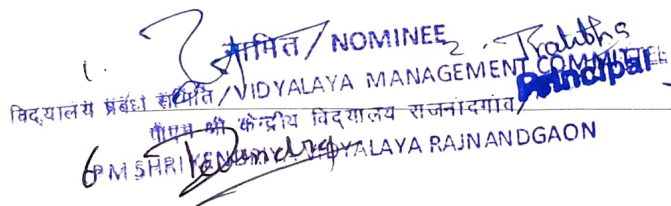 1. नामित / NOMINEE 2. Pratibha
विद्यालय प्रबंध समिति / VIDYALAYA MANAGEMENT COMMITTEE
Principal
पीएम श्री केन्द्रीय विद्यालय राजनांदगांव
6 PM SHRI KENDRIYA VIDYALAYA RAJNANDGAON